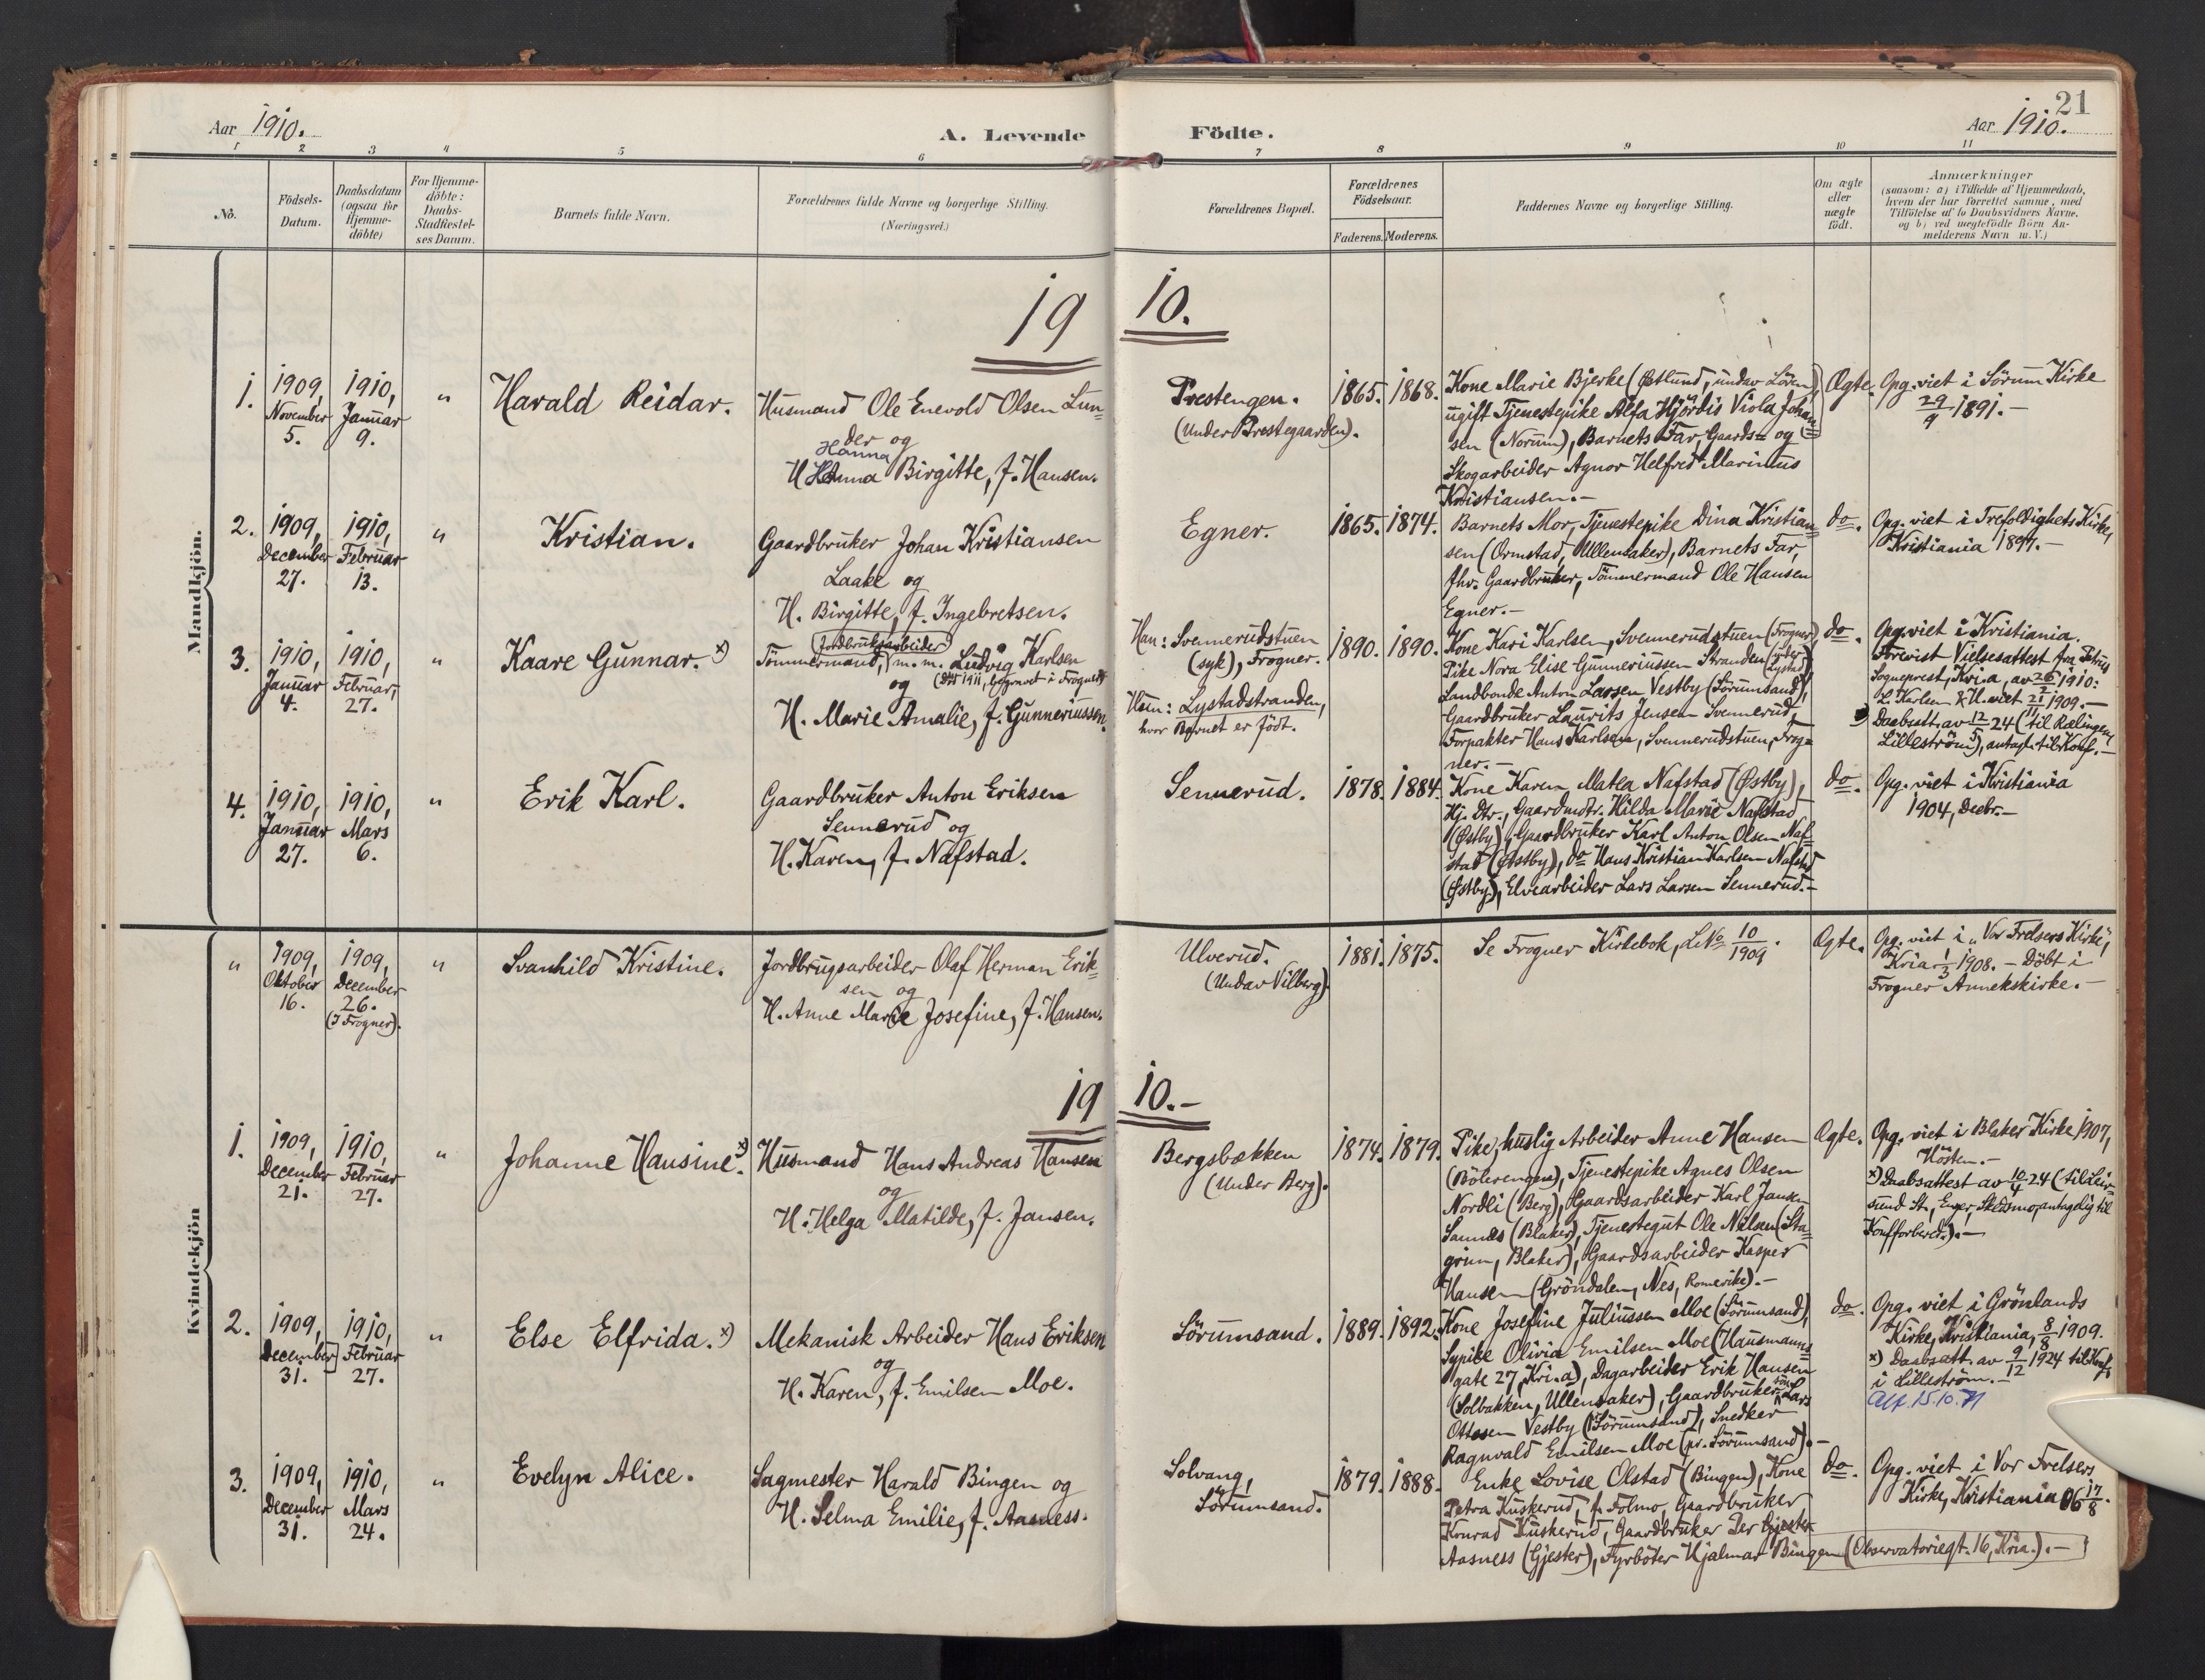 21
Aar 1910.
A. Levende
Födte.
Aar 1910.
1 2 3 4 5 6 7 8 9 10 11
No.
Födsels-
Datum.
Daabsdatum
(ogsaa for
Hjemme-
döbte)
For Hjemme-
döbte:
Daabs-
Stadfæstel-
ses Datum.
Barnets fulde Navn.
Forældrenes fulde Navne og borgerlige Stilling.
(Næringsvei.)
Forældrenes Bopæl.
Forældrenes
Födselsaar.
Faderens. Moderens.
Faddernes Navne og borgerlige Stilling.
Om ægte
eller
uægte
födt.
Anmærkninger
(saasom: a) i Tilfælde af Hjemmedaab,
hvem der har forrettet samme, med
Tilföielse af to Daabsvidners Navne.
og b) ved uægtefödte Börn An-
melderens Navn m. V.)
Mandkjön.
1910.
1.
1909,
November
5.
1910,
Januar
9.
"
Harald Reidar.
Husmand Ole Enevold Olsen Lun-
der og
Hanna
H. Birgitte, f. Hansen.
Prestengen.
(Under Prestegaarden).
1865. 1868.
Kone Marie Bjerke (Østlund, undav Lören),
ugift Tjenestepike Alfa Hjördis Viola Johan-
sen (Norum), Barnets Far, Gaards- og
Skogarbeider Agnor Helfred Marinius
Kristiansen.-
Ægte.
Opg. viet i Sörum Kirke
29/9 1891.-
2.
1909,
December
27.
1910,
Februar
13.
"
Kristian.
Gaardbruker Johan Kristiansen
Laake og
H. Birgitte, f. Ingebretsen.
Egner.
1865. 1874.
Barnets Mor, Tjenestepike Dina Kristian-
sen (Ormstad, Ullensaker), Barnets Far,
fhv. Gaardbruker, Tömmermand Ole Hansen
Egner.-
do.
Opg. viet i Trefoldighets Kirke,
Kristiania 1897.-
3.
1910,
Januar
4.
1910,
Februar,
27.
"
Kaare Gunnar. x)
Jordbruksarbeider
Tömmermand, m.m. Ludvig Karlsen
og (Död 1911, begravet i Frogner)
H. Marie Amalie, f. Gunneriussen.
Han: Svennerudstuen
(syk), Frogner.
Hun: Lystadstranden,
hvor Barnet er födt.
1890. 1890.
Kone Kari Karlsen, Svennerudstuen (Frogner),
Pike Nora Elise Gunneriussen Stranden (under Lystad),
Landbonde Anton Larsen Vestby (Sörumsand),
Gaardbruker Laurits Jensen Svennerud,
Forpakter Hans Karlsen, Svennerudstuen, Frog-
ner.-
do.
Opg. viet i Kristiania.
Forevist Vielsesattest fra Petrus
Sogneprest, Kri.a, av 26/2 1910:
L. Karlsen & H. viet 21/11 1909.-
x) Daabsatt. av 12/5 24 (til Rælingen,
Lilleström), antagel. til Konf.-
4.
1910,
Januar
27.
1910,
Mars
6.
"
Erik Karl.
Gaardbruker Anton Eriksen
Sennerud og
H. Karen, f. Nafstad.
Sennerud.
1878. 1884.
Kone Karen Matea Nafstad (Østby),
Hj. Dtr., Gaardmdtr. Hilda Marie Nafstad
(Østby), Gaardbruker Karl Anton Olsen Naf-
stad (Østby), do Hans Kristian Karlsen Nafstad
(Østby), Elvearbeider Lars Larsen Sennerud.-
do.
Opg. viet i Kristiania
1904, Decbr.-
Kvindekjön
"
1909,
Oktober
16.
1909,
December
26.
(I Frogner).
"
Svanhild Kristine.
Jordbrugsarbeider Olaf Herman Erik-
sen og
H. Anne Marie Josefine, f. Hansen.
Ulverud.
(Undav Vilberg).
1881. 1875.
Se Frogner Kirkebok, L.No 10/1909.
Ægte.
Opg. viet i "Vor Frelsers Kirke",
Kria 1/3 1908. - Döbt i
Frogner Annekskirke.-
1910.-
1.
1909,
December
21.
1910,
Februar
27.
"
Johanne Hansine. x)
Husmand Hans Andreas Hansen
og
H. Helga Matilde, f. Jansen.
Bergsbækken
(Under Berg).
1874. 1879.
Pike, huslig Arbeider Anne Hansen
(Bölerengen), Tjenestepike Agnes Olsen
Nordli (Berg), Gaardsarbeider Karl Jansen
Sannes (Blaker), Tjenestegut Ole Nilsen (Sta-
grim, Blaker), Gaardsarbeider Kasper
Hansen (Gröndalen, Nes, Romerike).-
Ægte.
Opg. viet i Blaker Kirke 1907,
Hösten.-
x) Daabsattest av 10/4 24 (til Leir-
sund St., Enger, Skedsmo, antagelig til
Konfforbered.).-
2.
1909,
December
31.
1910,
Februar
27.
"
Else Elfrida. x)
Mekanisk Arbeider Hans Eriksen
og
H. Karen, f. Emilsen Moe.
Sörumsand.
1889. 1892.
Kone Josefine Juliussen Moe (Sörumsand),
Sypike Olivia Emilsen Moe (Hausmanns-
gate 27, Kri.a), Dagarbeider Erik Hansen
(Solbakken, Ullensaker), Gaardbrukersön Lars
Ottosen Vestby (Sörumsand), Snedker
Ragnvald Emilsen Moe (pr. Sörumsand).-
do.
Opg. viet i Grönlands
Kirke, Kristiania, 8/8 1909.
x) Daabsatt. av 9/12 1924 til Konf.
i Lilleström.-
Att. 15.10.71
3.
1909,
December
31.
1910,
Mars
24.
"
Evelyn Alice.
Sagmester Harald Bingen og
H. Selma Emilie, f. Aasness.
Solvang,
Sörumsand.
1879. 1888.
Enke Lovise Olstad (Bingen), Kone
Petra Kuskerud, f. Folmo, Gaardbruker
Konrad Kuskerud, Gaardbruker Per Gjester
Aasness (Gjester), Fyrböter Hjalmar Bingen (Observatoriegt. 16, Kria.).-
do.
Opg. viet i Vor Frelsers
Kirke, Kristiania 06 17/8.